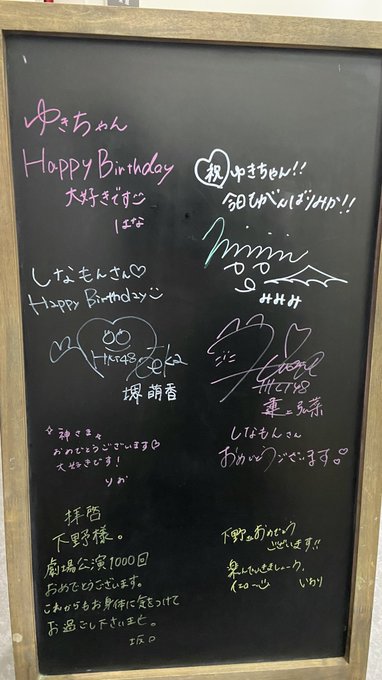 ゆきちゃん
Happy Birthday
大好きです
はな
祝 ゆきちゃん!!
今日もがんばりみか!!
mimin
みみみ
しなもんさん♡
Happy Birthday
HKT48
堺 萌香
HKT48
しなもんさん
おめでとうございます!
神さま
おめでとうございます♡
大好きです!
りお
拝啓
下野様。
劇場公演1000回
おめでとうございます。
これからもお身体に気をつけて
お過ごし下さいませ。
坂口
下野さんおめでとう
ございます!!
いおり